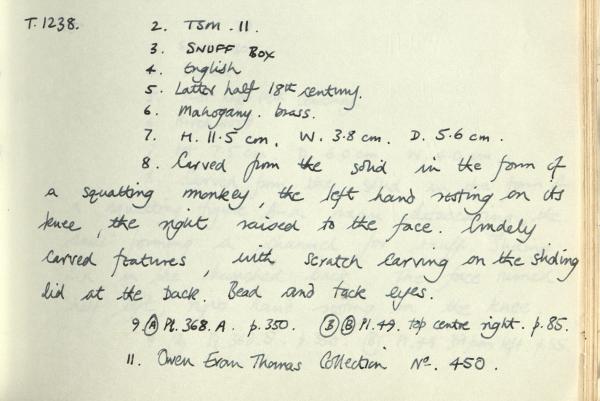 T.1238. 2. TSM. 11.
3. SNUFF BOX
4. English
5. Latter half 18th century.
6. Mahogany. brass.
7. H. 11.5 cm. W. 3.8 cm. D. 5.6 cm.
8. Carved from the solid in the form of
a squatting monkey, the left hand resting on its
knee, the right raised to the face. Crudely
carved features, with scratch carving on the sliding
lid at the back. Bead and tack eyes.
9. Ⓐ Pl. 368. A. p. 350. ③ Ⓑ Pl. 49. top centre right. p. 85.
11. Owen Evan Thomas Collection No. 450.